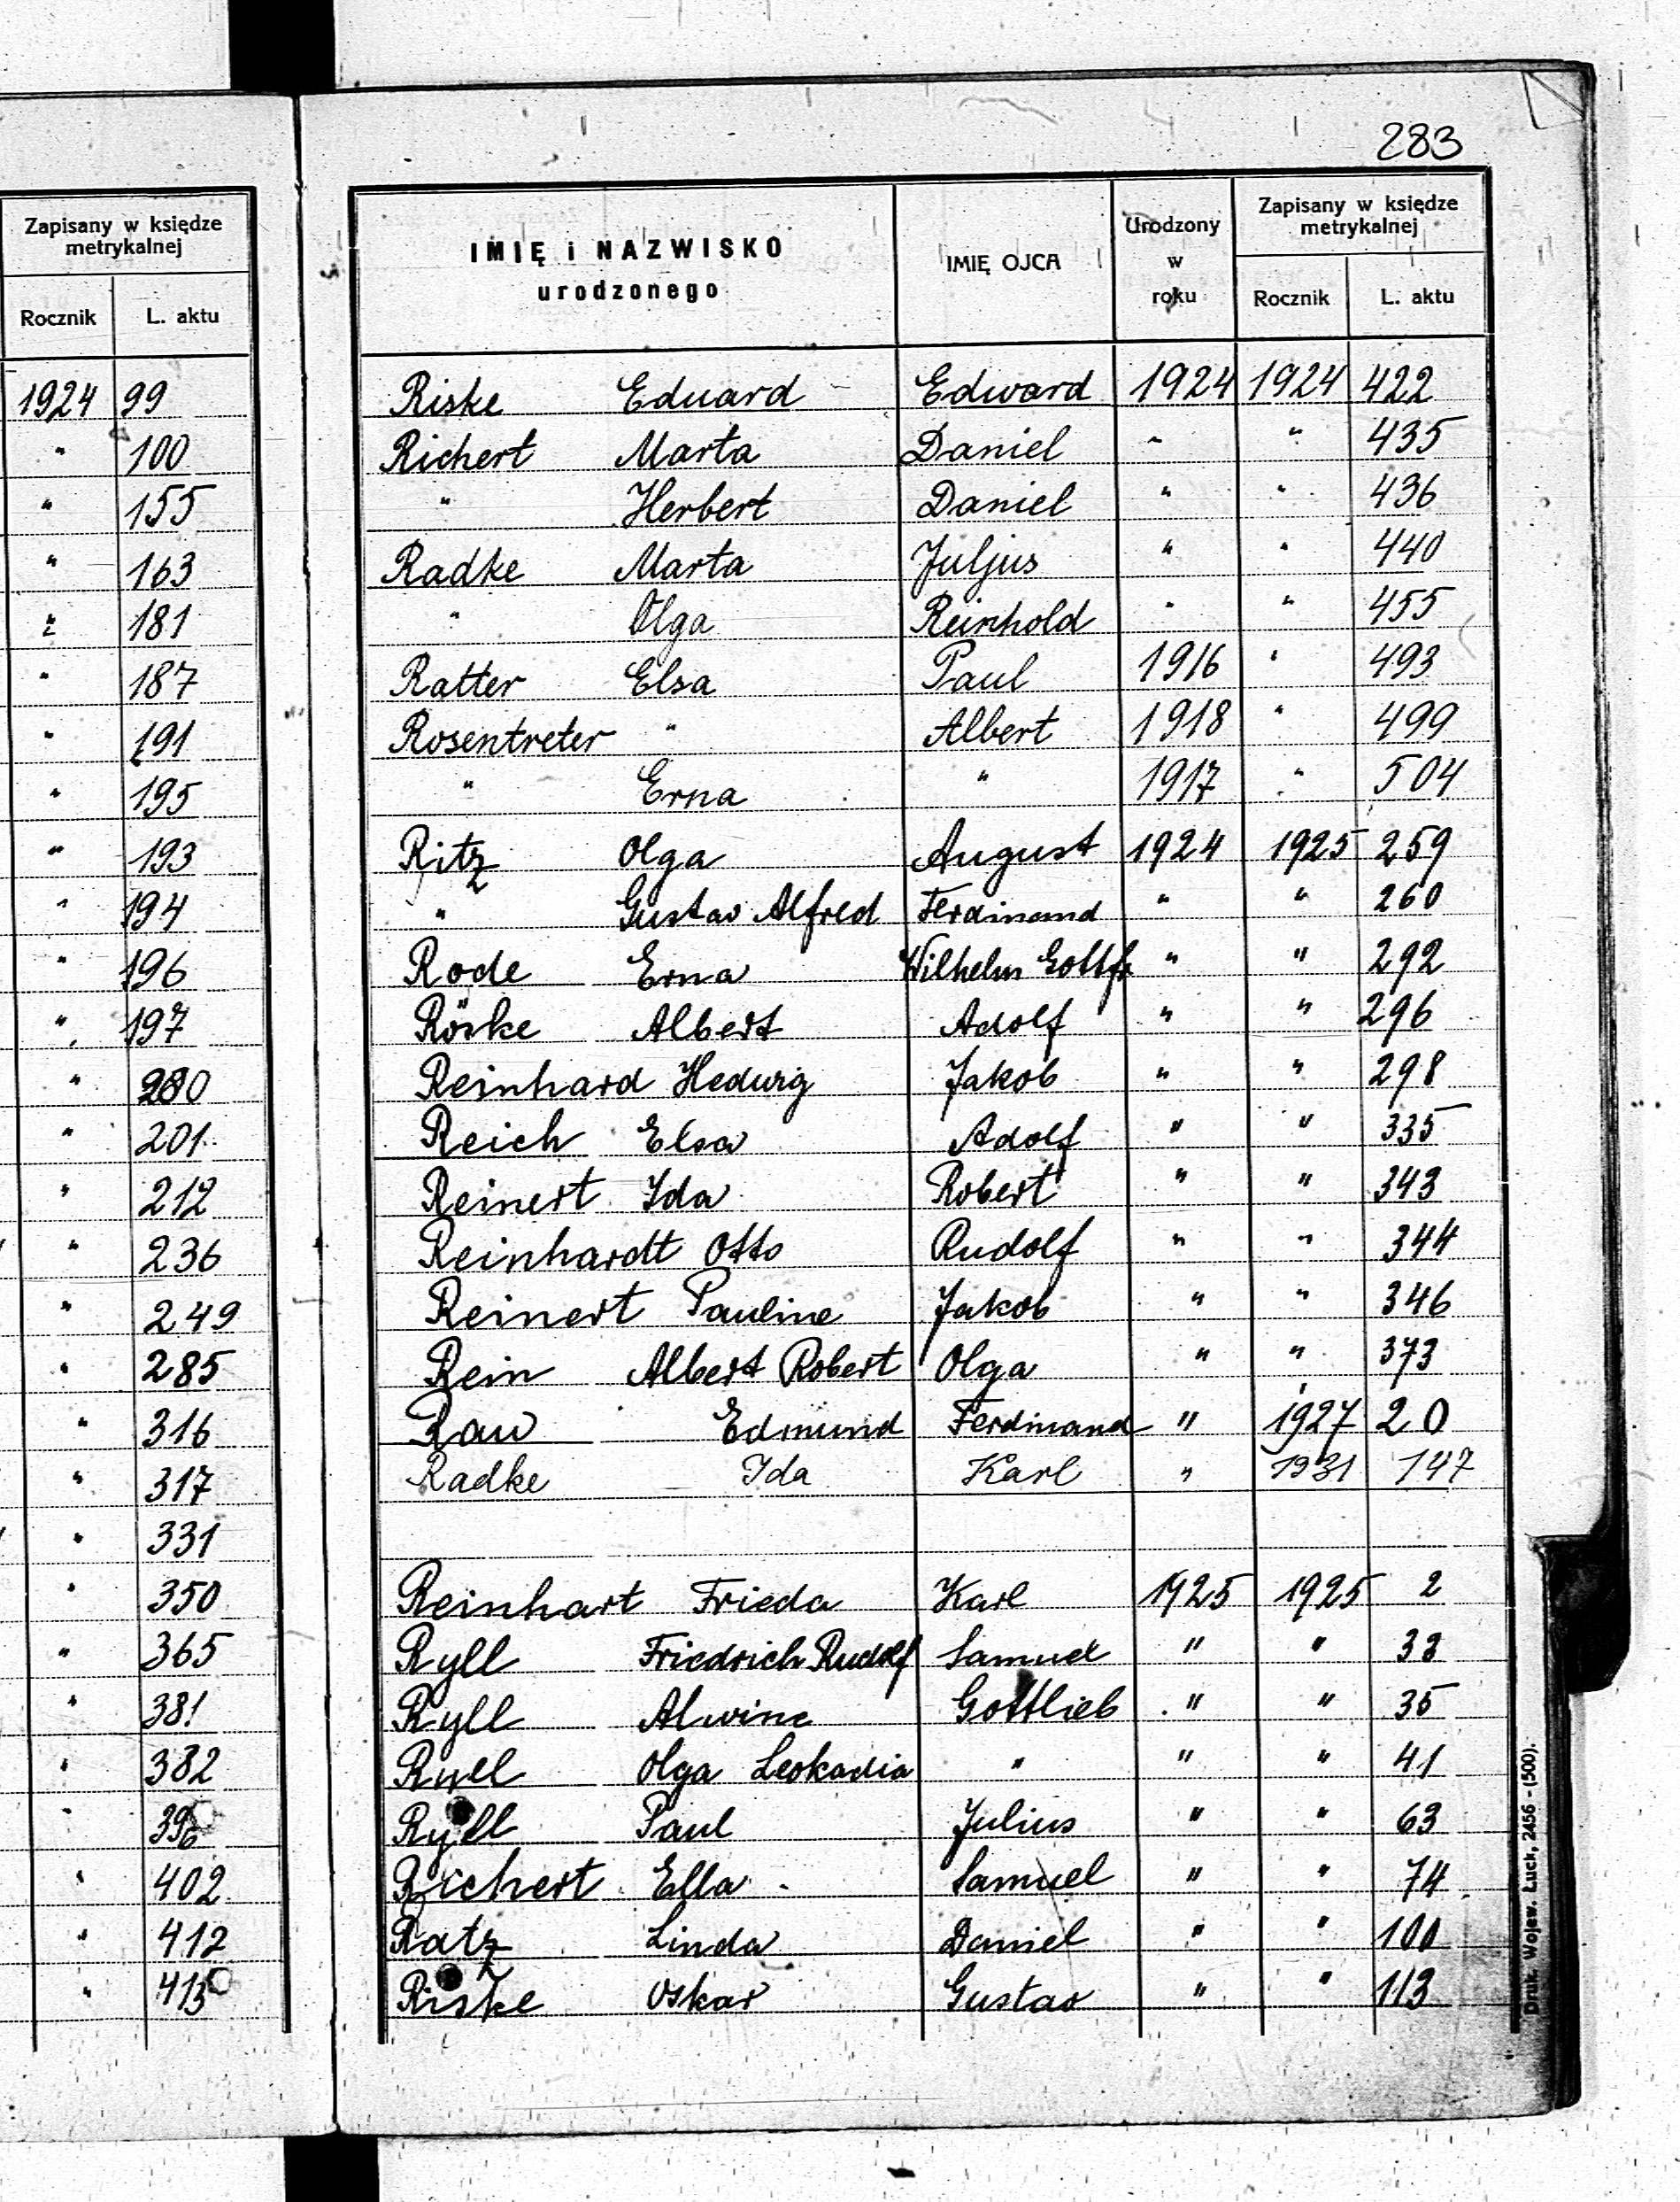 283
Zapisany w księdze
metrykalnej
Rocznik L. aktu
1924 99
" 100
" 155
" 163
" 181
" 187
" 191
" 195
" 193
" 194
" 196
" 197
" 200
" 201
" 212
" 236
" 249
" 285
" 316
" 317
" 331
" 350
" 365
" 381
" 382
" 396
" 402
" 412
" 413
IMIĘ i NAZWISKO
urodzonego
IMIĘ OJCA
Urodzony
w
roku
Zapisany w księdze
metrykalnej
Rocznik L. aktu
Riske Eduard Edward 1924 1924 422
Richert Marta Daniel " " 435
" Herbert Daniel " " 436
Radke Marta Juljus " " 440
" Olga Reinhold " " 455
Ratter Elsa Paul 1916 " 493
Rosentreter " Albert 1918 " 499
" Erna " 1917 " 504
Ritz Olga August 1924 1925 259
" Gustav Alfred Ferdinand " " 260
Rode Erna Wilhelm Gottfr " " 292
Röske Albert Adolf " " 296
Reinhard Hedwig Jakob " " 298
Reich Elsa Adolf " " 335
Reinert Ida Robert " " 343
Reinhardt Otto Rudolf " " 344
Reinert Pauline Jakob " " 346
Rein Albert Robert Olga " " 373
Rau Edmund Ferdinand " 1927 20
Radke Ida Karl " 1931 147
Reinhart Frieda Karl 1925 1925 2
Ryll Friedrich Rudolf Samuel " " 33
Ryll Alwine Gottlieb " " 35
Ryll Olga Leokadia " " " 41
Ryll Paul Julius " " 63
Richert Ella Samuel " " 74
Ratz Linda Daniel " " 100
Riske Oskar Gustav " " 113
Druk. Wojew. Łuck, 2456 - (500).